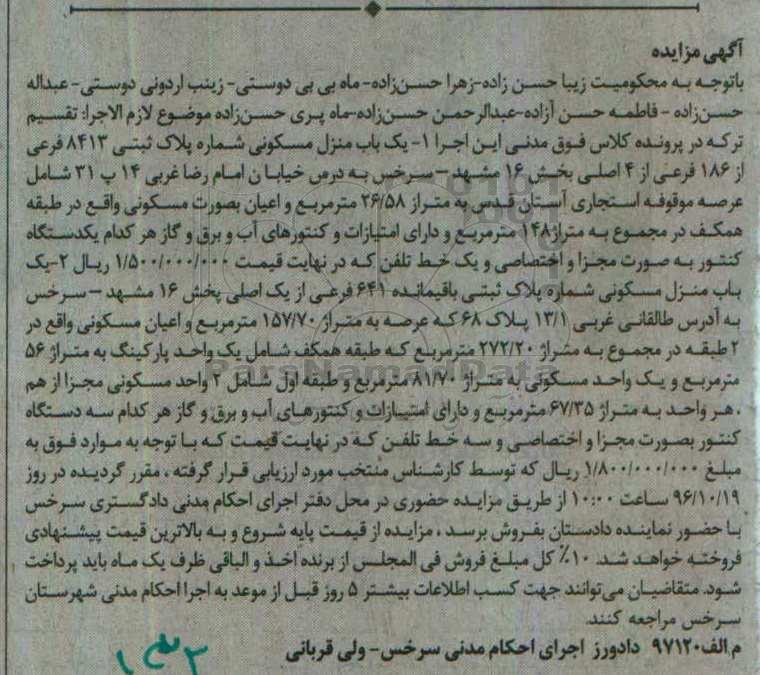 آگهی مزایده
باتوجه به محکومیت زیبا حسن زاده-زهرا حسن‌زاده-ماه بی بی دوستی- زینب اردونی دوستی-عبداله
حسن‌زاده - فاطمه حسن آزاده-عبدالرحمن حسن‌زاده-ماه پری حسن‌زاده موضوع لازم الاجرا: تقسیم
ترکه در پرونده کلاس فوق مدنی این اجرا ۱- یک باب منزل مسکونی شماره پلاک ثبتی ۸۴۱۳ فرعی
از ۱۸۶ فرعی از ۴ اصلی بخش ۱۶ مشهد – سرخس به درس خیابا ن امام رضا غربی ۱۴ پ ۳۱ شامل
عرصه موقوفه استجاری آستان قدس به متراژ ۲۶/۵۸ مترمربع و اعیان بصورت مسکونی واقع در طبقه
همکف در مجموع به متراژ۱۴۸ مترمربع و دارای امتیازات و کنتورهای آب و برق و گاز هر کدام یکدستگاه
کنتور به صورت مجزا و اختصاصی و یک خط تلفن که در نهایت قیمت ۱/۵۰۰/۰۰۰/۰۰۰ ریال ۲-یک
باب منزل مسکونی شماره پلاک ثبتی باقیمانده ۶۴۱ فرعی از یک اصلی پخش ۱۶ مشهد – سرخس
به آدرس طالقانی غربی ۱۳/۱ پلاک ۶۸ که عرصه به متراژ ۱۵۷/۷۰ مترمربع و اعیان مسکونی واقع در
۲ طبقه در مجموع به متراژ ۲۷۲/۲۰ مترمربع که طبقه همکف شامل یک واحد پارکینگ به متراژ ۵۶
مترمربع و یک واحد مسکونی به متراژ ۸۱/۷۰ مترمربع و طبقه اول شامل ۲ واحد مسکونی مجزا از هم
، هر واحد به متراژ ۶۷/۳۵ مترمربع و دارای امتیازات و کنتورهای آب و برق و گاز هر کدام سه دستگاه
کنتور بصورت مجزا و اختصاصی و سه خط تلفن که در نهایت قیمت که با توجه به موارد فوق به
مبلغ ۱/۸۰۰/۰۰۰/۰۰۰ ریال که توسط کارشناس منتخب مورد ارزیابی قرار گرفته ، مقرر گردیده در روز
۹۶/۱۰/۱۹ ساعت ۱۰:۰۰ از طریق مزایده حضوری در محل دفتر اجرای احکام مدنی دادگستری سرخس
با حضور نماینده دادستان بفروش برسد ، مزایده از قیمت پایه شروع و به بالاترین قیمت پیشنهادی
فروخته خواهد شد. ۱۰٪ کل مبلغ فروش فی المجلس از برنده اخذ و الباقی ظرف یک ماه باید پرداخت
شود. متقاضیان می‌توانند جهت کسب اطلاعات بیشتر ۵ روز قبل از موعد به اجرا احکام مدنی شهرستان
سرخس مراجعه کنند.
م.الف۹۷۱۲۰ دادورز اجرای احکام مدنی سرخس- ولی قربانی
ParsNamadData